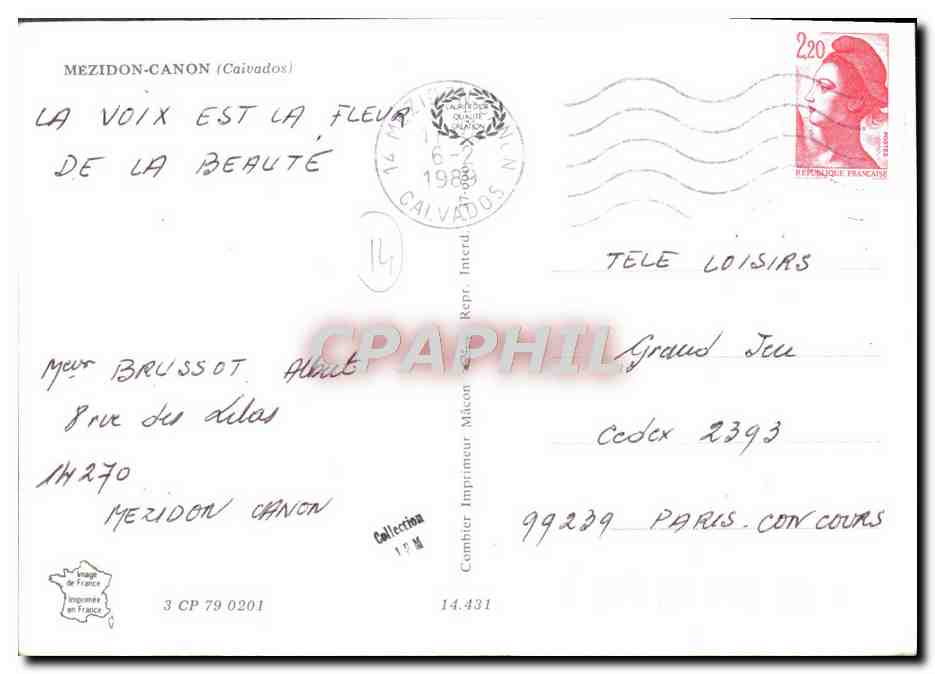 MEZIDON-CANON (Calvados)
LA VOIX EST LA FLEUR
DE LA BEAUTÉ
14 MEZI
LAURIER D'OR
QUALITÉ
CREATION
1989
CALVADOS
2,20
POSTES
REPUBLIQUE FRANÇAISE
14
TELE LOISIRS
Grand Jeu
Cedex 2393
99239 PARIS-CONCOURS
CPAPHIL
Meur BRUSSOT Albert
8 rue des Lilas
14270
MEZIDON CANON
Collection
Combier Imprimeur Mâcon
Repr. Interd.
Image
de France
Imprimée
en France
3 CP 79 0201
14.431